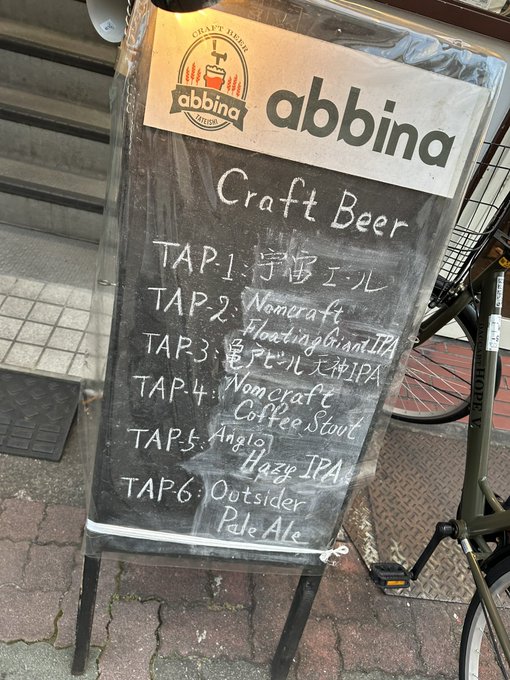 CRAFT BEER
abbina
TATEISHI
abbina
Craft Beer
TAP.1: 宇宙エール
TAP-2: Nomcraft
Floating Giant IPA
TAP.3: 亀アビール天神IPA
TAP-4: Nomcraft
Coffee Stout
TAP.5: Anglo
Hazy IPA
TAP-6: Outsider
Pale Ale
HOPE. V